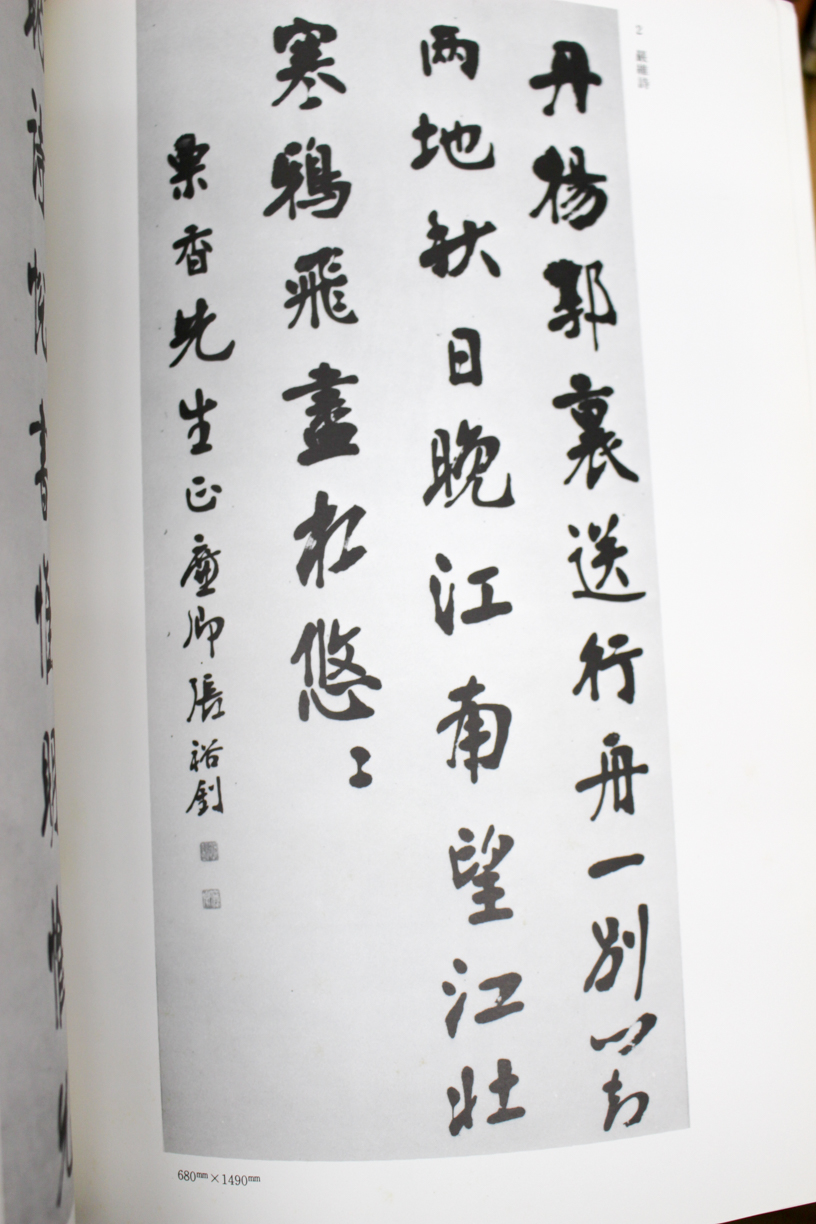 2 嚴維詩
丹楊郭裏送行舟一別心知
两地秋日晚江南望江北
寒鴉飛盡水悠〻
栗香先生正廉卿張裕釗
680mm×1490mm